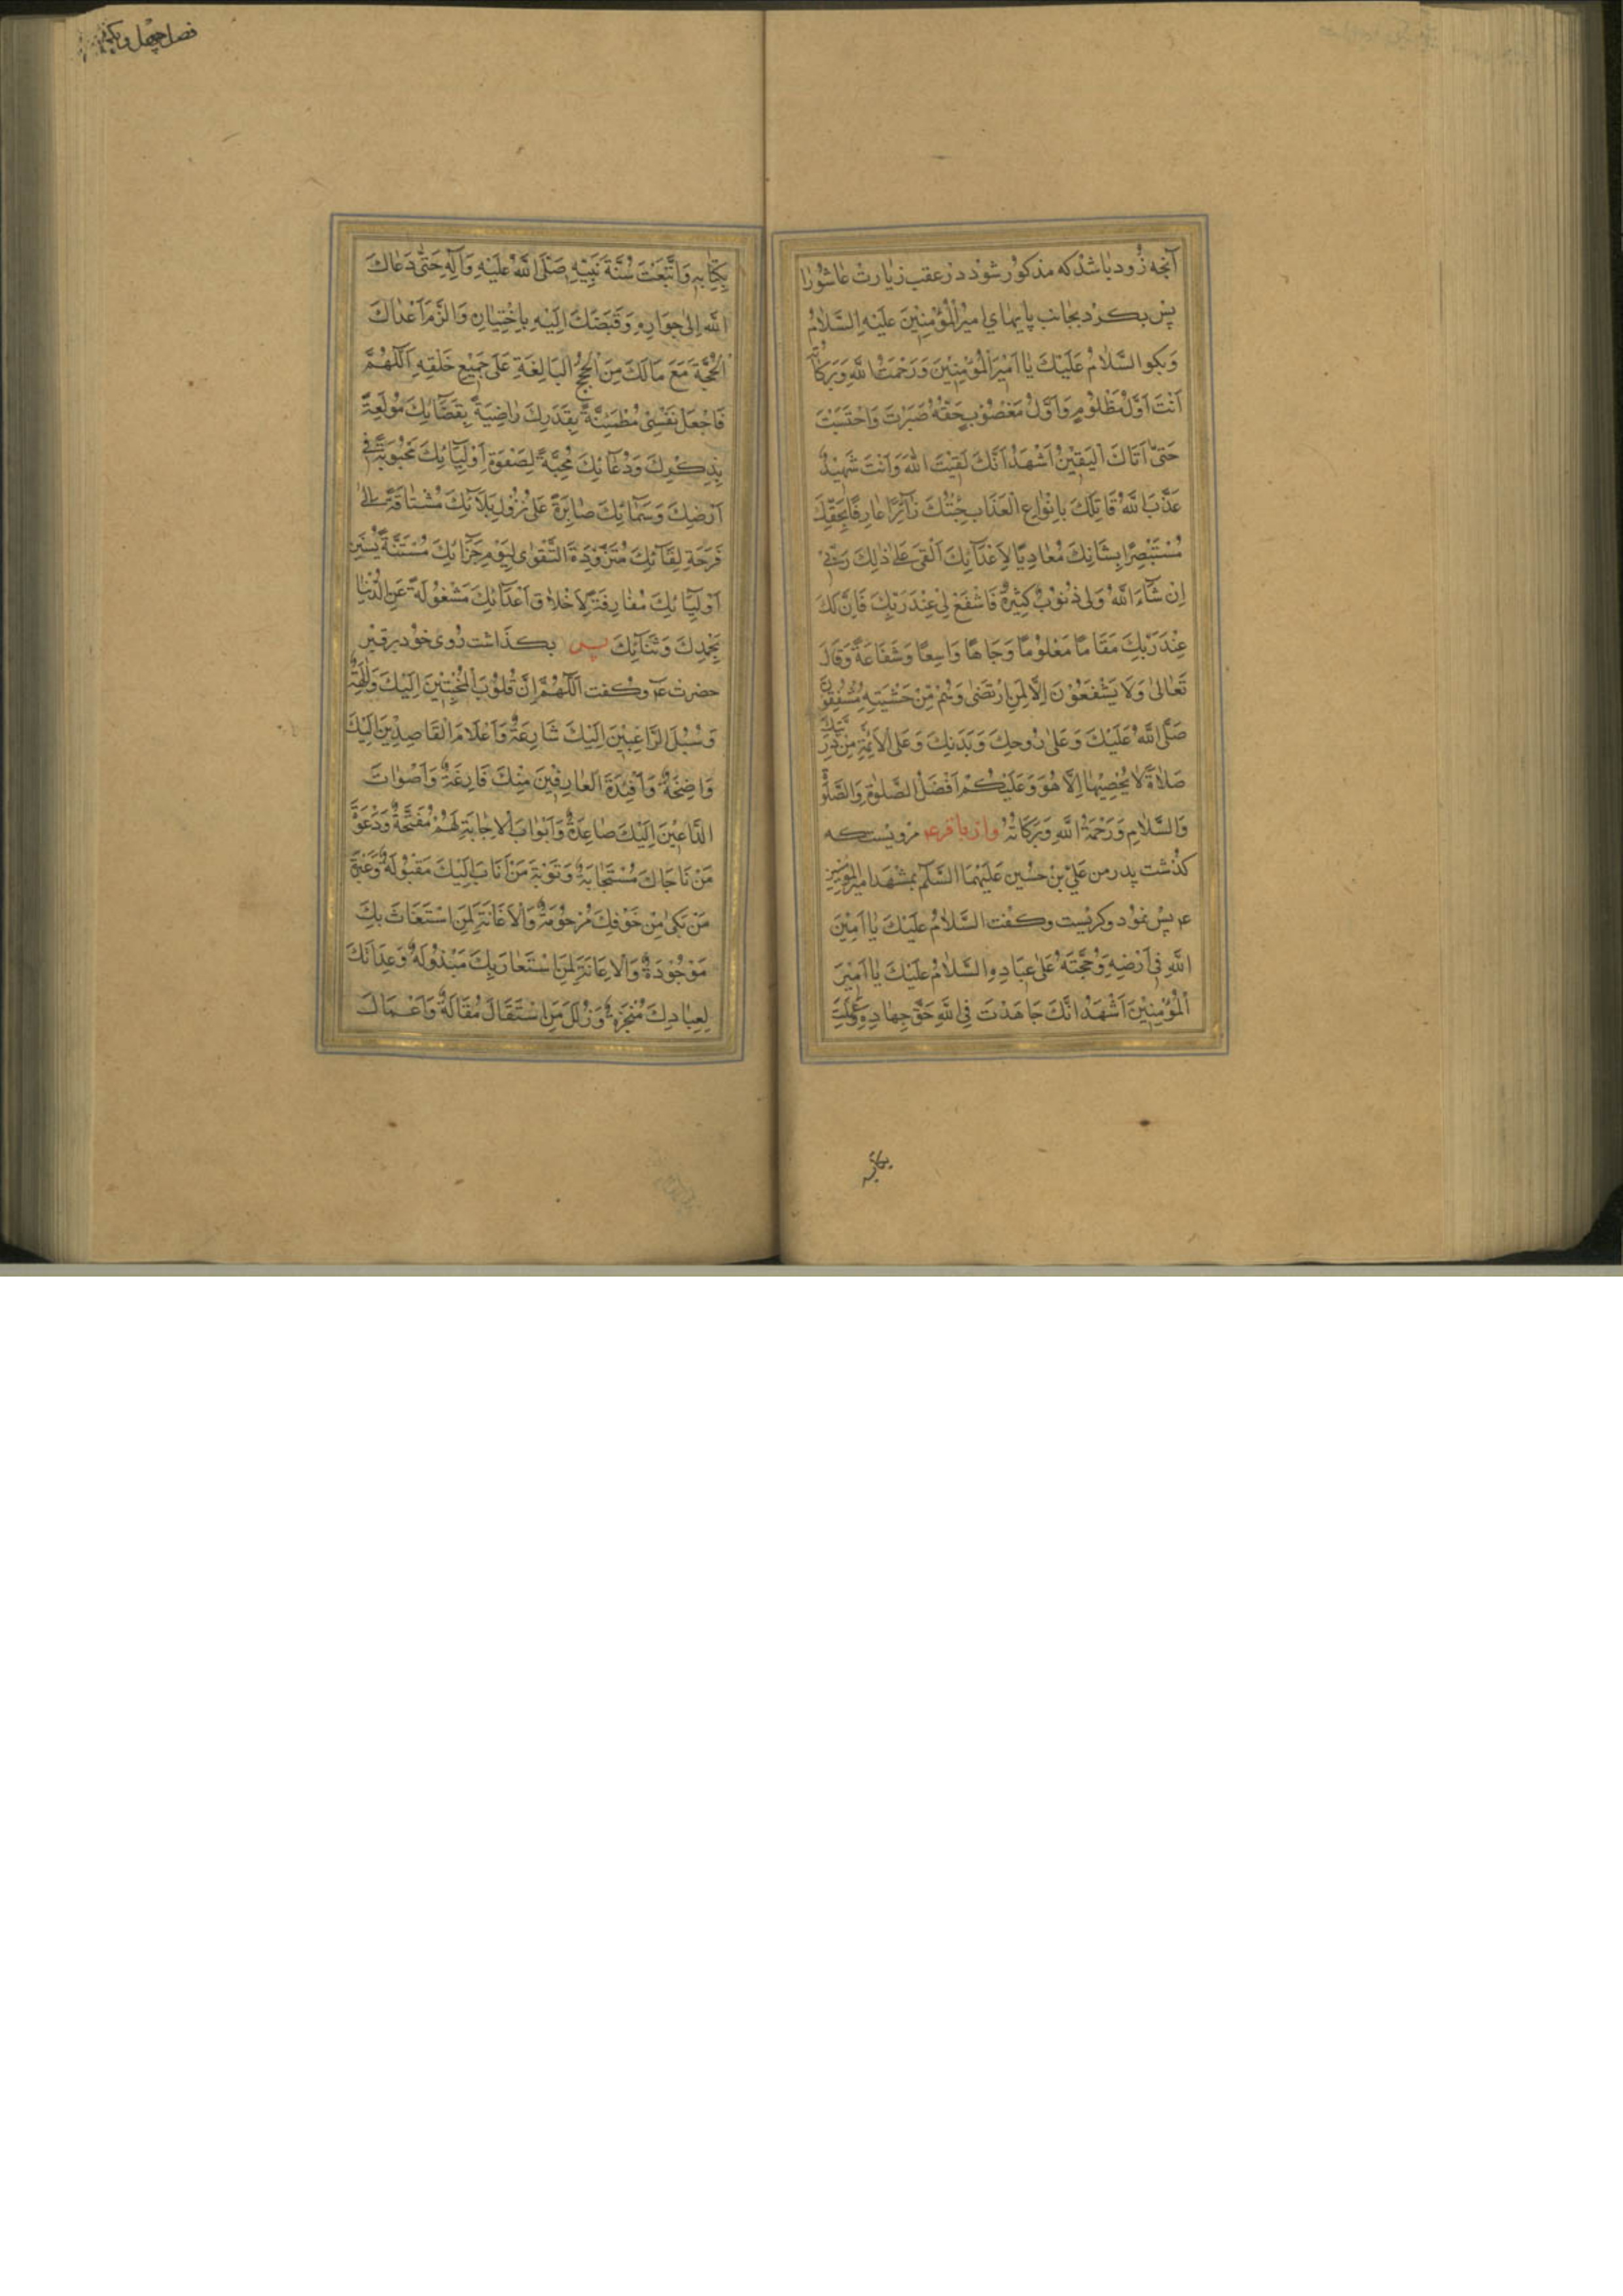 آنچه زود باشد که مذکور شود در عقب زیارت عاشورا
پس بکرد بجانب پایهای امیر المؤمنین علیه السلام
وَبکو السَّلَامُ عَلَيْكَ يَا اَمِيْرَ الْمُؤْمِنِيْنَ وَرَحْمَتُ اللَّهِ وَبَرَكَاتُهُ
اَنْتَ اَوَّلُ مَظْلُومٍ وَاَوَّلُ مَغْصُوْبٍ حَقُّهُ صَبَرْتَ وَاحْتَسَبْتَ
حَتّىٰ اَتَاكَ الْيَقِيْنُ اَشْهَدُ اَنَّكَ لَقِيْتَ اللّٰهَ وَاَنْتَ شَهِيْدٌ
عَذَّبَ اللَّهُ قَاتِلَكَ بِاَنْوَاعِ الْعَذَابِ جِئْتُكَ زَآئِرًا عَارِفًا بِحَقِّكَ
مُسْتَبْصِرًا بِشَانِكَ مُعَادِيًا لِاَعْدَآئِكَ اَلْقىٰ عَلىٰ ذٰلِكَ رَبّى
اِنْ شَآءَ اللَّهُ وَلى ذُنُوبٌ كَثِيْرَةٌ فَاشْفَعْ لى عِنْدَ رَبِّكَ فَاِنَّ لَكَ
عِنْدَ رَبِّكَ مَقَامًا مَعْلُوْمًا وَجَاهًا وَاسِعًا وَشَفَاعَةً وَقَالَ
تَعَالىٰ وَلَا يَشْفَعُوْنَ اِلَّا لِمَنِ ارْتَضىٰ وَهُمْ مِّنْ خَشْيَتِهِ مُشْفِقُوْنَ
صَلَّى اللَّهُ عَلَيْكَ وَعَلىٰ رُوحِكَ وَبَدَنِكَ وَعَلَى الْاَئِمَّةِ مِنْ ذُرِّيَّتِكَ
صَلَاةً لَا يُحْصِيْهَا اِلَّا هُوَ وَعَلَيْكُمْ اَفْضَلُ الصَّلٰوةِ وَالصَّلٰوةُ
وَالسَّلَامِ وَرَحْمَةُ اللَّهِ وَبَرَكَاتُهُ واز باقر ع مرویست که
کذشت پدر من علی بن حسین علیهما السلم بمشهد امیر المؤمنین
ع پس نمود وکریست وکفت السَّلَامُ عَلَيْكَ يَا اَمِيْنَ
اللَّهِ فِي اَرْضِهِ وَحُجَّتَهُ عَلىٰ عِبَادِهِ السَّلَامُ عَلَيْكَ يَا اَمِيْرَ
الْمُؤْمِنِيْنَ اَشْهَدُ اَنَّكَ جَاهَدْتَ فِي اللَّهِ حَقَّ جِهَادِهِ وَعَمِلْتَ
بکتابه
فصل چهل ویکم
بِكِتَابِهِ وَاتَّبَعْتَ سُنَّةَ نَبِيِّهِ صَلَّى اللَّهُ عَلَيْهِ وَآلِهِ حَتّىٰ دَعَاكَ
اللَّهُ اِلىٰ جِوَارِهِ وَقَبَضَكَ اِلَيْهِ بِاخْتِيَارِهِ وَالْزَمَ اَعْدَاكَ
الْحُجَّةَ مَعَ مَا لَكَ مِنَ الْحُجَجِ الْبَالِغَةِ عَلىٰ جَمِيْعِ خَلْقِهِ اَللّٰهُمَّ
فَاجْعَلْ نَفْسِىْ مُطْمَئِنَّةً بِقَدَرِكَ رَاضِيَةً بِقَضَآئِكَ مُوْلَعَةً
بِذِكْرِكَ وَدُعَآئِكَ مُحِبَّةً لِصَفْوَةِ اَوْلِيَآئِكَ مَحْبُوْبَةً فِى
اَرْضِكَ وَسَمَائِكَ صَابِرَةً عَلىٰ نُزُوْلِ بَلَآئِكَ مُشْتَاقَةً اِلىٰ
فَرْحَةِ لِقَآئِكَ مُتَزَوِّدَةً التَّقْوٰى لِيَوْمِ جَزَائِكَ مُسْتَنَّةً بِسُنَنِ
اَوْلِيَآئِكَ مُفَارِقَةً لِاَخْلَاقِ اَعْدَآئِكَ مَشْغُوْلَةً عَنِ الدُّنْيَا
بِحَمْدِكَ وَثَنَآئِكَ پس بکذاشت روی خود بر قبر
حضرت ع وکفت اَللّٰهُمَّ اِنَّ قُلُوْبَ الْمُخْبِتِيْنَ اِلَيْكَ وَالِهَةٌ
وَسُبُلَ الرَّاغِبِيْنَ اِلَيْكَ شَارِعَةٌ وَاَعْلَامَ الْقَاصِدِيْنَ اِلَيْكَ
وَاضِحَةٌ وَاَفْئِدَةَ الْعَارِفِيْنَ مِنْكَ فَازِعَةٌ وَاَصْوَاتَ
الدَّاعِيْنَ اِلَيْكَ صَاعِدَةٌ وَاَبْوَابَ الْاِجَابَةِ لَهُمْ مُفَتَّحَةٌ وَدَعْوَةَ
مَنْ نَاجَاكَ مُسْتَجَابَةٌ وَتَوْبَةَ مَنْ اَنَابَ اِلَيْكَ مَقْبُوْلَةٌ وَعَبْرَةَ
مَنْ بَكىٰ مِنْ خَوْفِكَ مَرْحُوْمَةٌ وَالْاِغَاثَةَ لِمَنِ اسْتَغَاثَ بِكَ
مَوْجُوْدَةٌ وَالْاِعَانَةَ لِمَنِ اسْتَعَانَ بِكَ مَبْذُوْلَةٌ وَعِدَاتَكَ
لِعِبَادِكَ مُنْجَزَةٌ وَزَلَلَ مَنِ اسْتَقَالَكَ مُقَالَةٌ وَاَعْمَالَ